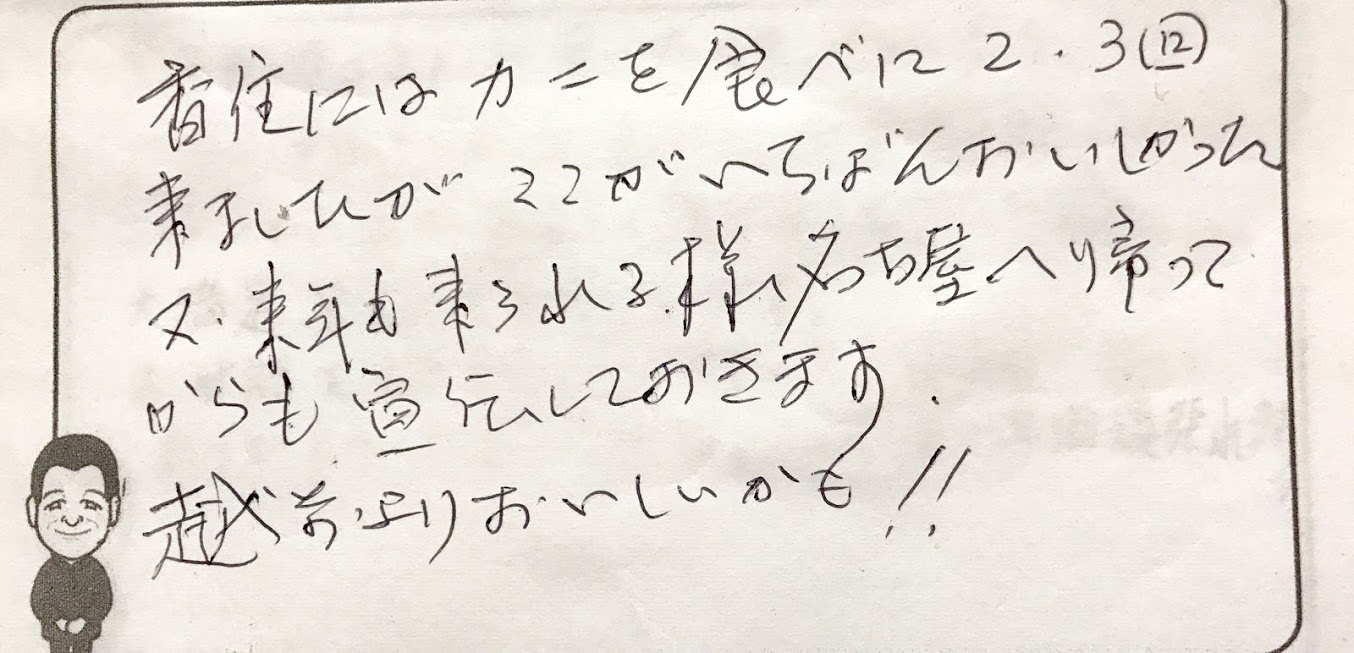 香住にはカニを食べに2・3回
来ましたがココがいちばんおいしかった
又、来年も来られる様、名古屋へり帰って
からも宣伝しておきます.
越前よりおいしいかも!!